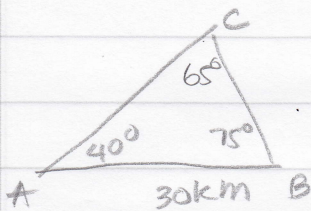 C
65°
40° 75°
A 30km B